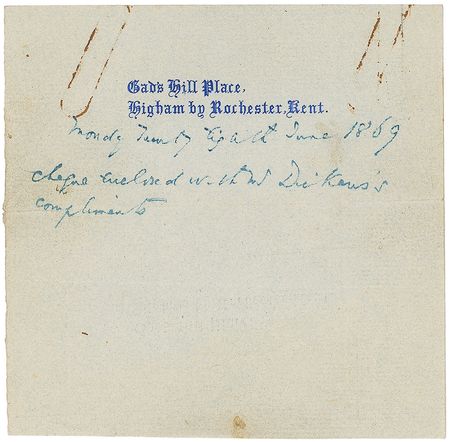 Gad's Hill Place,
Higham by Rochester, Kent.
Monday Twenty Eighth June 1869
cheque enclosed with Mr Dickens's
compliments